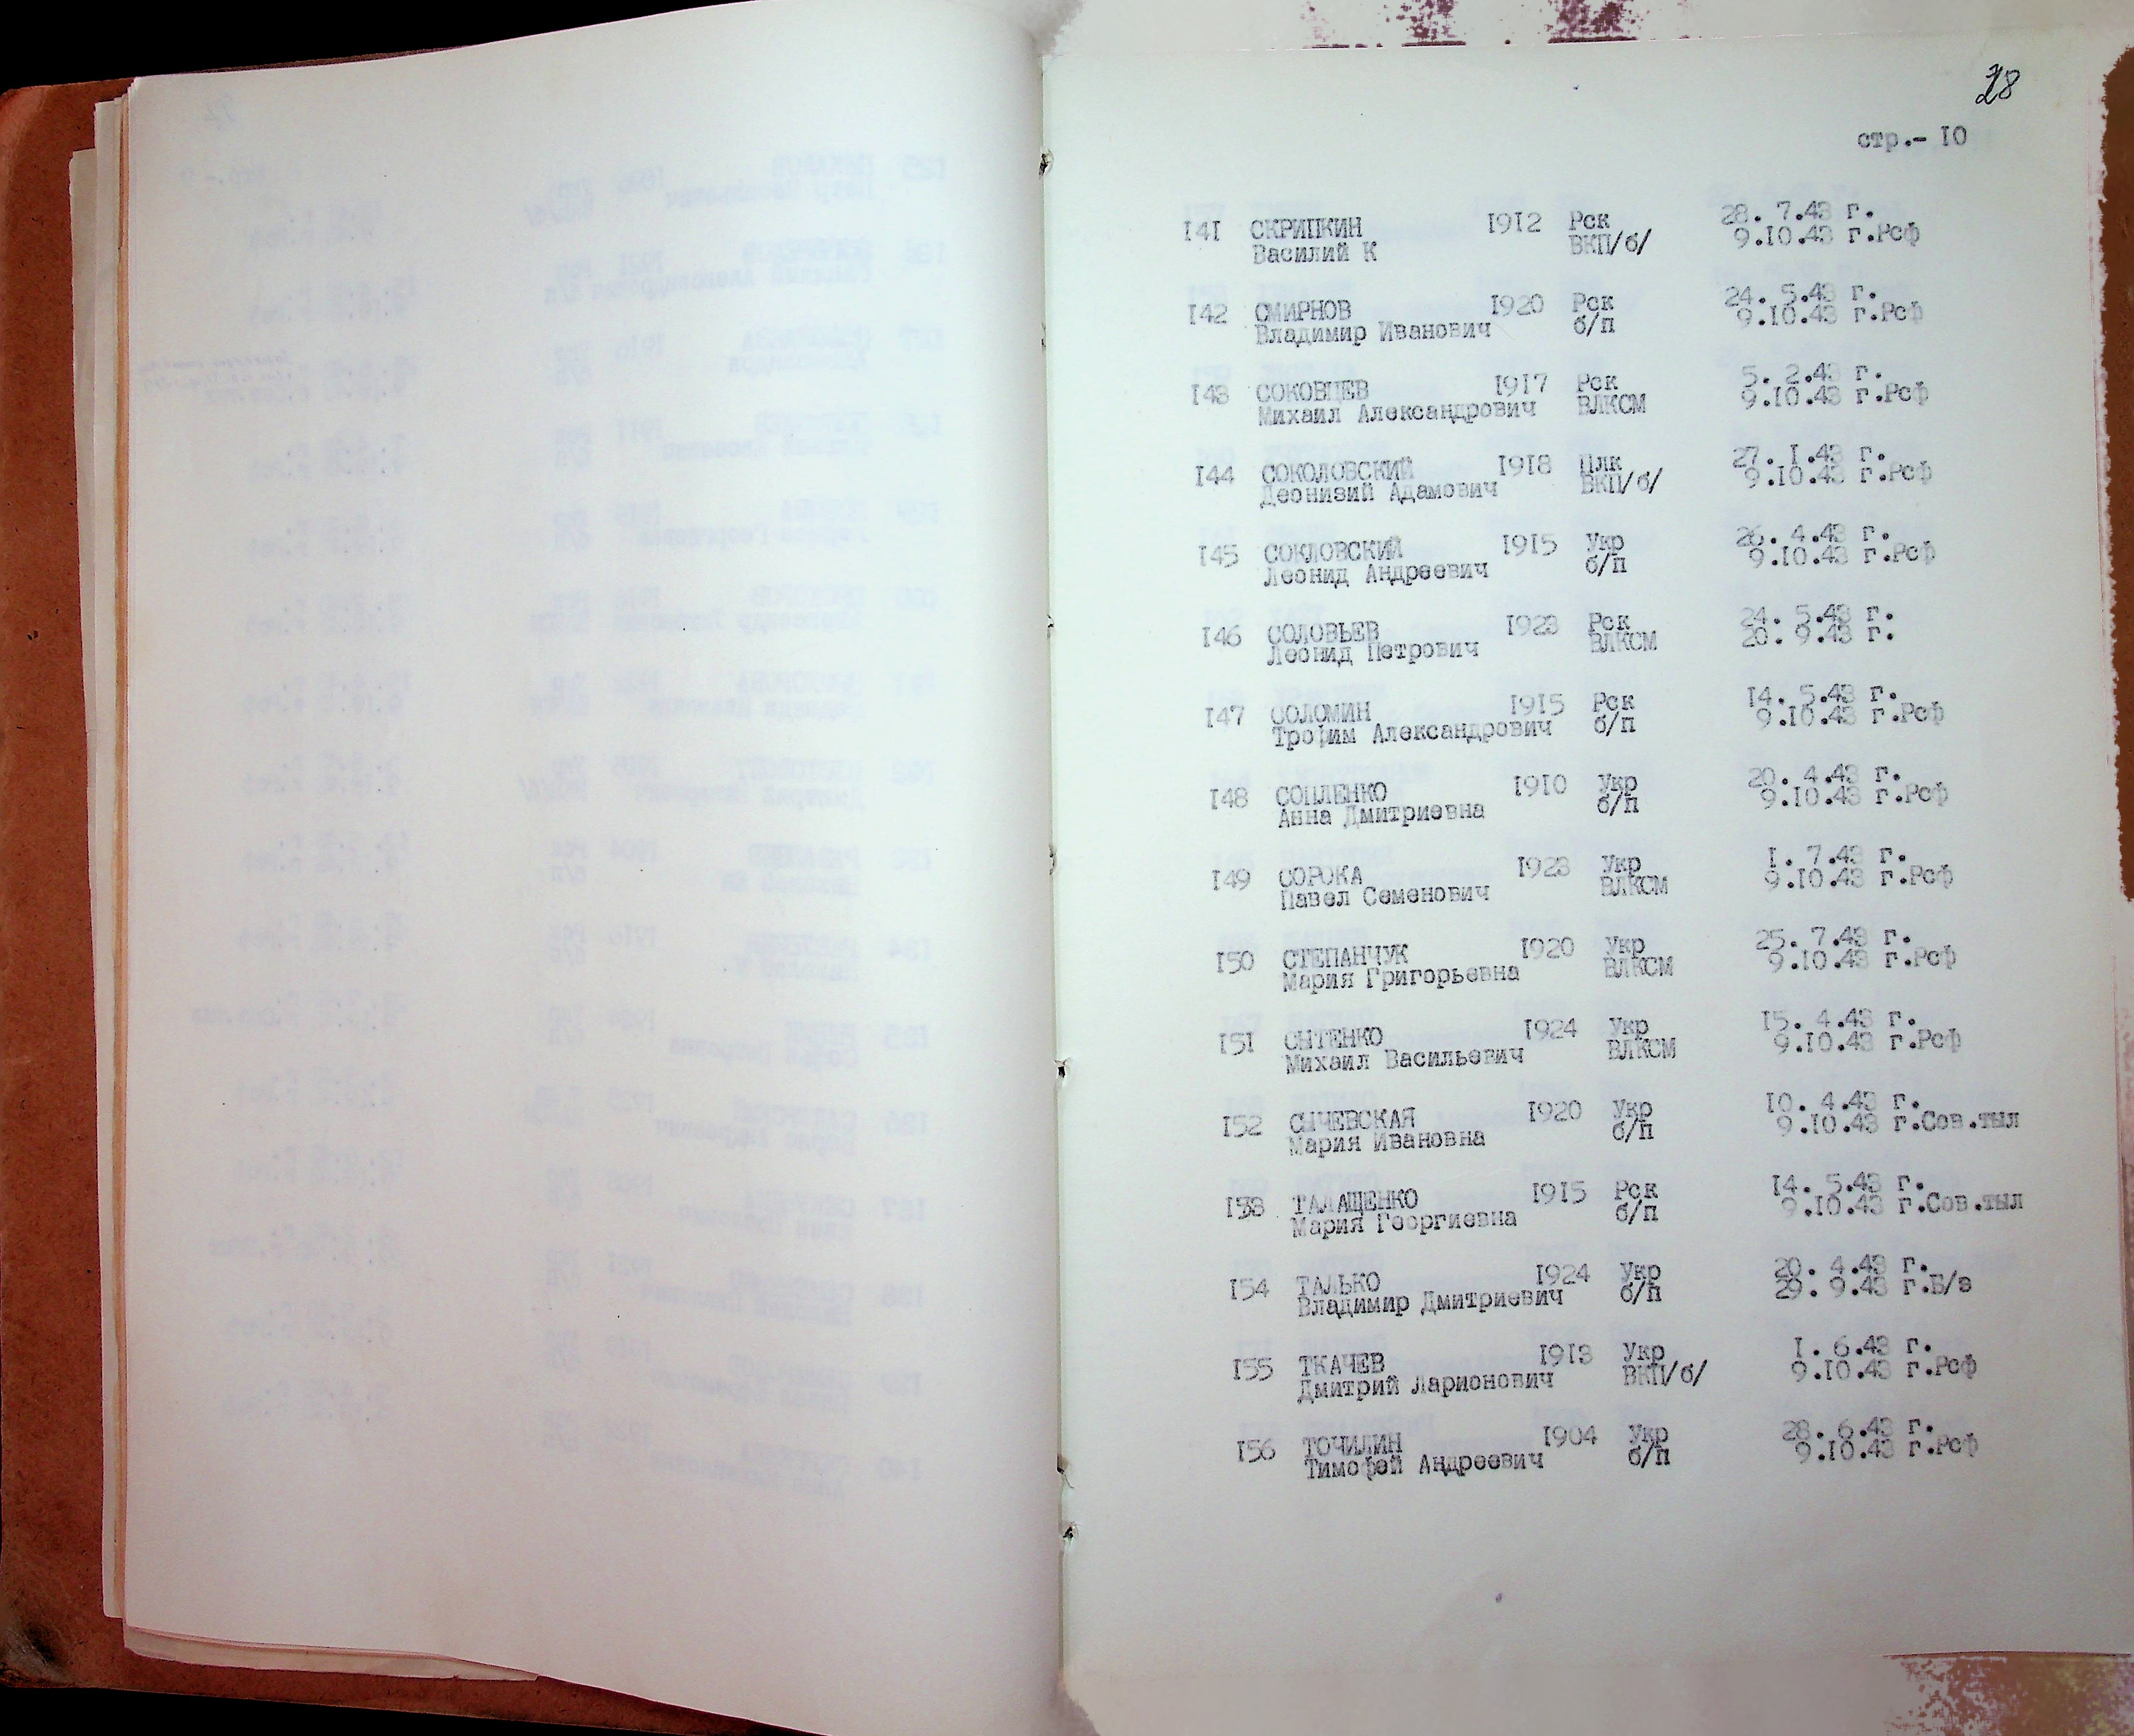 28
стр.- 10
141 СКРИПКИН 1912 Рск 28. 7.43 г.
Василий К ВКП/б/ 9.10.43 г.Рсф
142 СМИРНОВ 1920 Рск 24. 5.43 г.
Владимир Иванович б/п 9.10.43 г.Рсф
143 СОКОВЦЕВ 1917 Рск 5. 2.43 г.
Михаил Александрович ВЛКСМ 9.10.43 г.Рсф
144 СОКОЛОВСКИЙ 1918 Плк 27. 1.43 г.
Деонизий Адамович ВКП/б/ 9.10.43 г.Рсф
145 СОКЛОВСКИЙ 1915 Укр 26. 4.43 г.
Леонид Андреевич б/п 9.10.43 г.Рсф
146 СОЛОВЬЕВ 1923 Рск 24. 5.43 г.
Леонид Петрович ВЛКСМ 20. 9.43 г.
147 СОЛОМИН 1915 Рск 14. 5.43 г.
Трофим Александрович б/п 9.10.43 г.Рсф
148 СОПЛЕНКО 1910 Укр 20. 4.43 г.
Анна Дмитриевна б/п 9.10.43 г.Рсф
149 СОРОКА 1923 Укр 1. 7.43 г.
Павел Семенович ВЛКСМ 9.10.43 г.Рсф
150 СТЕПАНЧУК 1920 Укр 25. 7.43 г.
Мария Григорьевна ВЛКСМ 9.10.43 г.Рсф
151 СЫТЕНКО 1924 Укр 15. 4.43 г.
Михаил Васильевич ВЛКСМ 9.10.43 г.Рсф
152 СЫЧЕВСКАЯ 1920 Укр 10. 4.43 г.
Мария Ивановна б/п 9.10.43 г.Сов.тыл
153 ТАЛАЩЕНКО 1915 Рск 14. 5.43 г.
Мария Георгиевна б/п 9.10.43 г.Сов.тыл
154 ТАЛЬКО 1924 Укр 20. 4.43 г.
Владимир Дмитриевич б/п 29. 9.43 г.Б/з
155 ТКАЧЕВ 1913 Укр 1. 6.43 г.
Дмитрий Ларионович ВКП/б/ 9.10.43 г.Рсф
156 ТОЧИЛИН 1904 Укр 28. 6.43 г.
Тимофей Андреевич б/п 9.10.43 г.Рсф